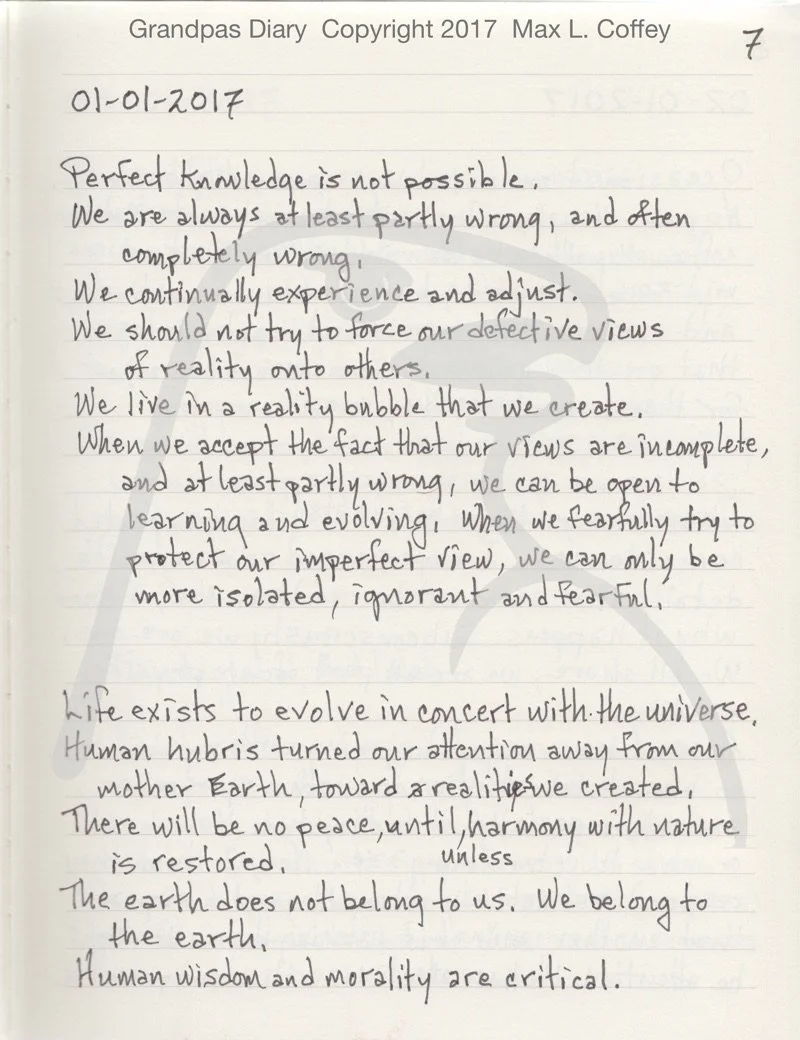 Grandpas Diary Copyright 2017 Max L. Coffey
7
01-01-2017
Perfect Knowledge is not possible.
We are always at least partly wrong, and often
completely wrong.
We continually experience and adjust.
We should not try to force our defective views
of reality onto others.
We live in a reality bubble that we create.
When we accept the fact that our views are incomplete,
and at least partly wrong, we can be open to
learning and evolving. When we fearfully try to
protect our imperfect view, we can only be
more isolated, ignorant and fearful.
Life exists to evolve in concert with the universe.
Human hubris turned our attention away from our
mother Earth, toward realities we created.
There will be no peace, until, harmony with nature
is restored. unless
The earth does not belong to us. We belong to
the earth.
Human wisdom and morality are critical.